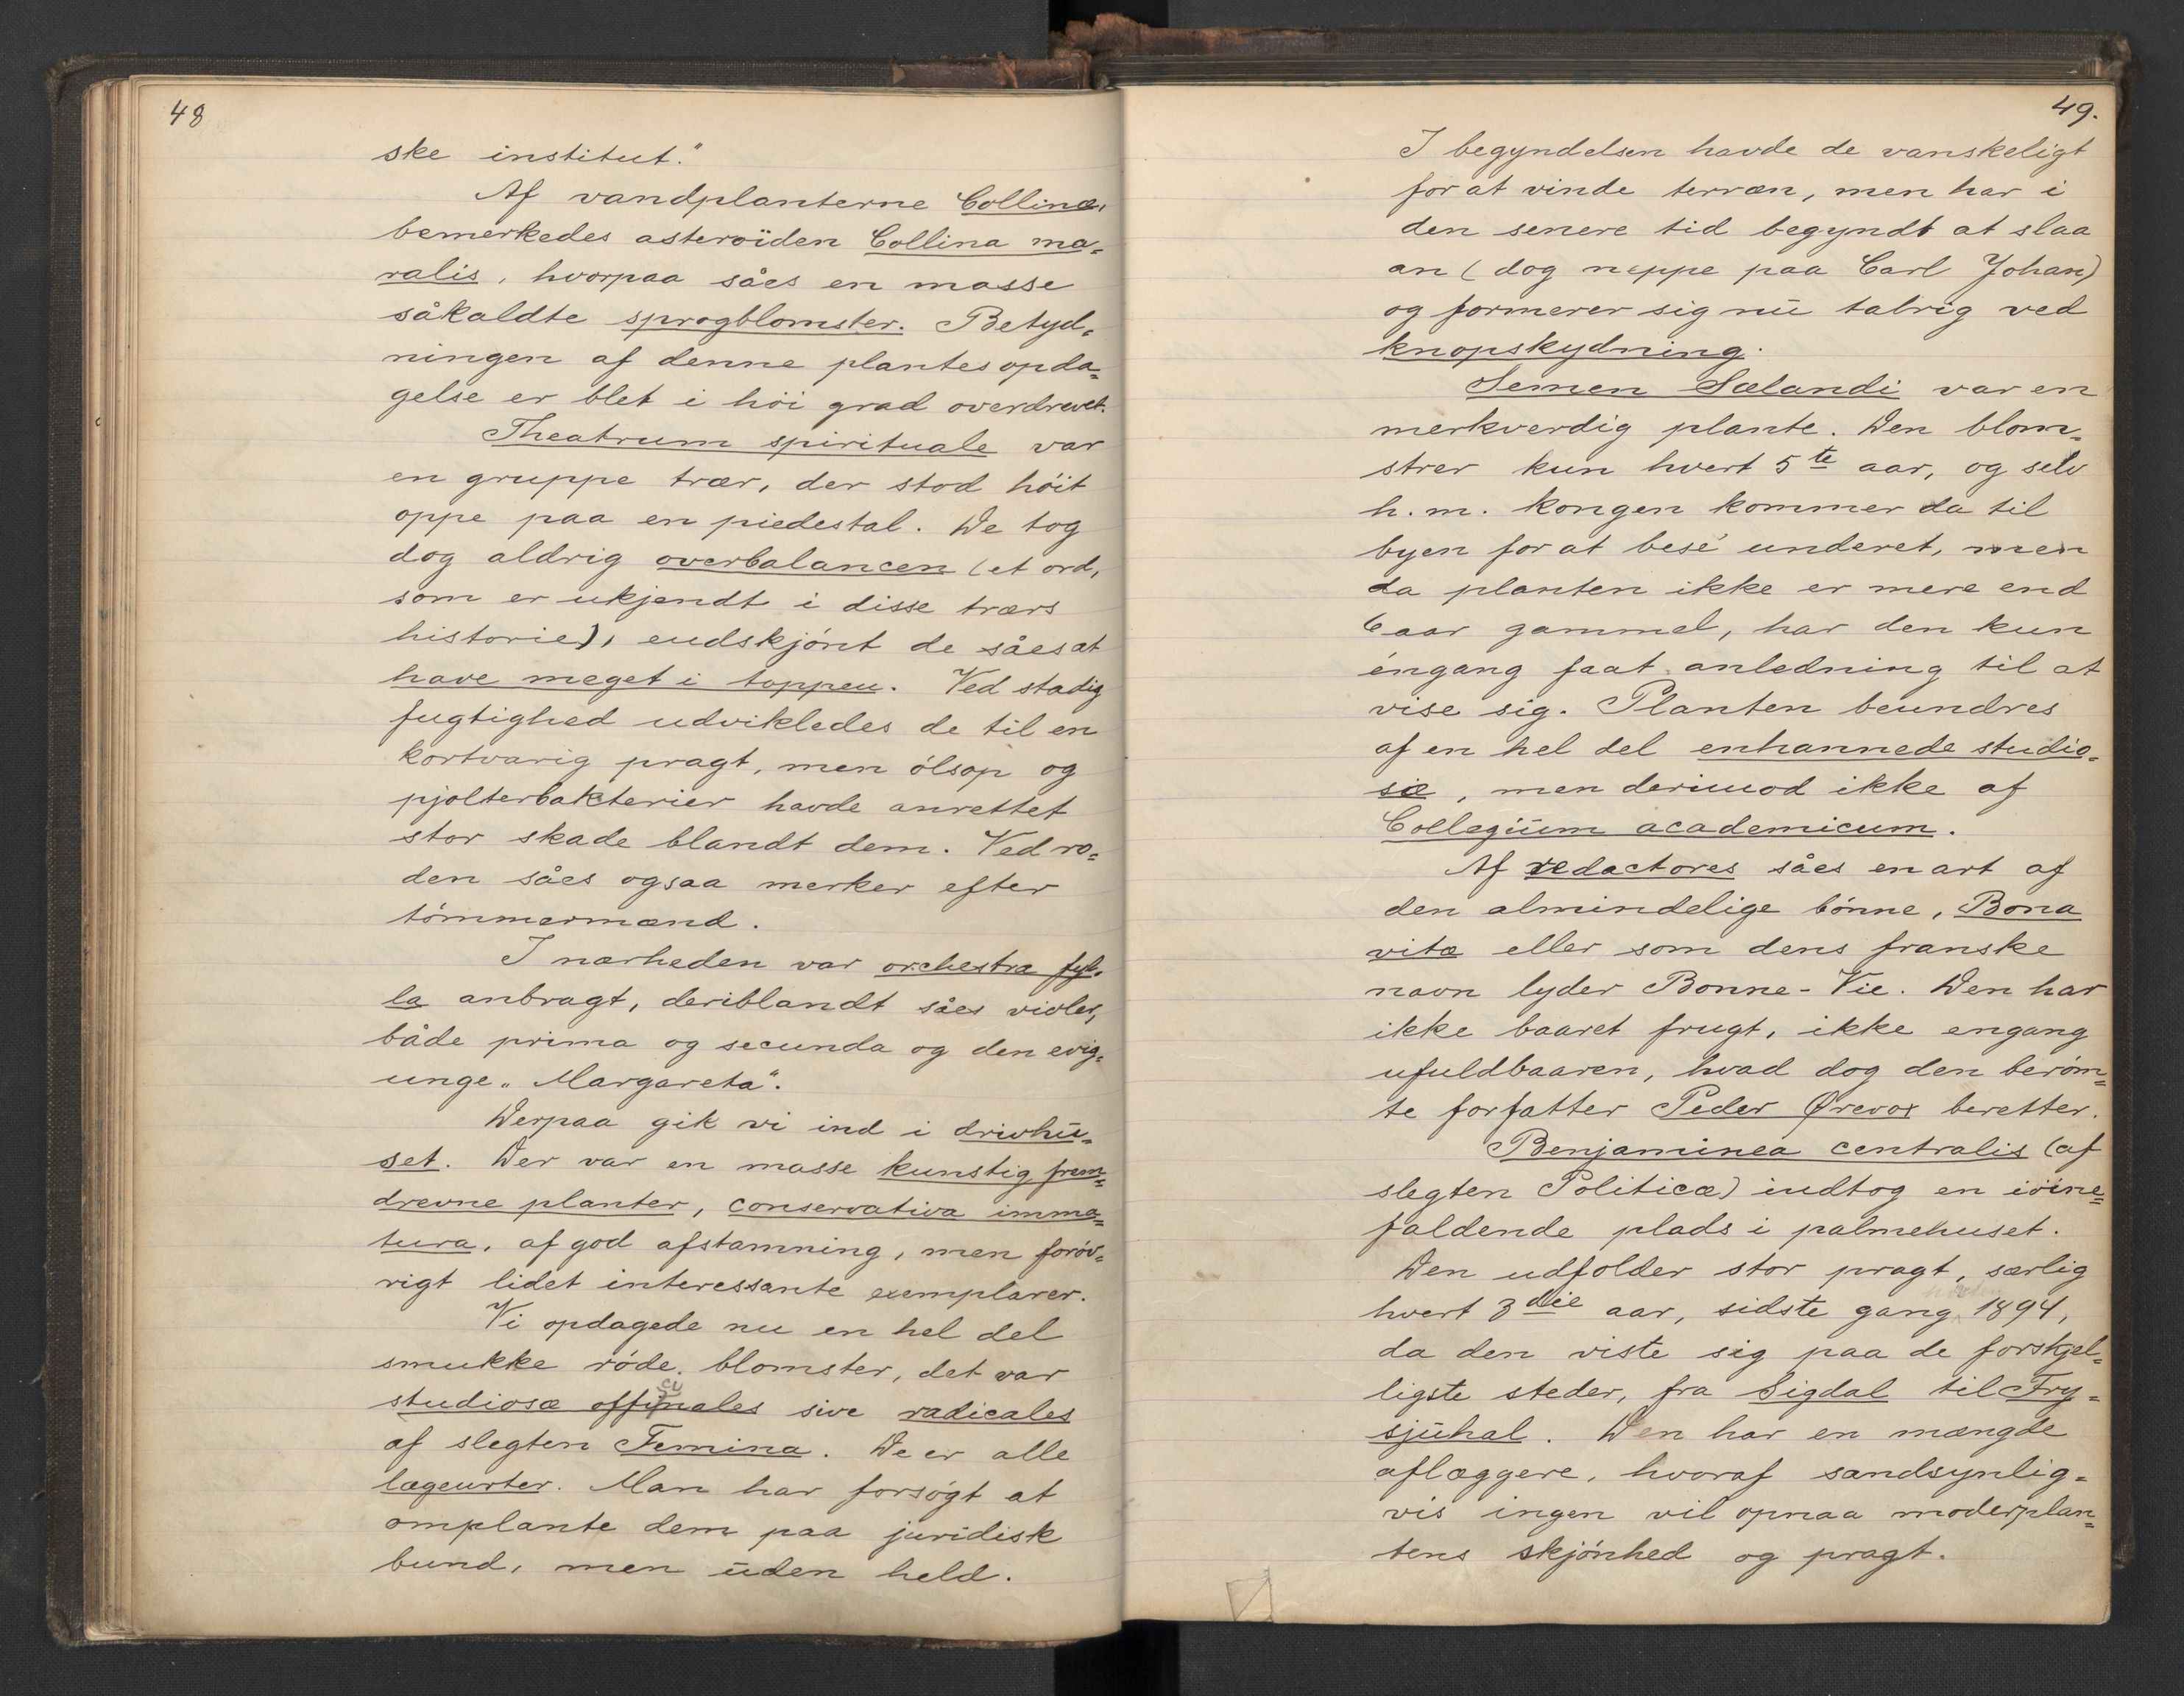 48
ske institut."
Af vandplanterne Collinæ,
bemerkedes asteroïden Collina ma=
ralis, hvorpaa såes en masse
såkaldte sprogblomster. Betyd=
ningen af denne plantes opda=
gelse er blet i höi grad overdrevet.
Theatrum spirituale var
en gruppe trær, der stod höit
oppe paa en piedestal. De tog
dog aldrig overbalancen (et ord,
som er ukjendt i disse trærs
historie), endskjönt de såes at
have meget i toppen. Ved stadig
fugtighed udvikledes de til en
kortvarig pragt, men ölsop og
pjolterbakterier havde anrettet
stor skade blandt dem. Ved ro=
den såes ogsaa merker efter
tömmermænd.
I nærheden var orchestra fyl=
la anbragt, deriblandt såes violer,
både prima og secunda og den evig=
unge „Margareta".
Derpaa gik vi ind i drivhu=
set. Der var en masse kunstig frem=
drevne planter, conservativa imma=
tura, af god afstamning, men foröv=
rigt lidet interessante exemplarer.
Vi opdagede nu en hel del
smukke röde blomster, det var
studiosæ officinales sive radicales
af slegten Femina. De er alle
lægeurter. Man har forsögt at
omplante dem paa juridisk
bund, men uden held.
49.
I begyndelsen havde de vanskeligt
for at vinde terræn, men har i
den senere tid begyndt at slaa
an (dog neppe paa Carl Johan)
og formerer sig nu talrig ved
knopskydning.
Semen Sælandi var en
merkverdig plante. Den blom=
strer kun hvert 5te aar, og selv
h. m. kongen kommer da til
byen for at besé underet, men
da planten ikke er mere end
6 aar gammel, har den kun
éngang faat anledning til at
vise sig. Planten beundres
af en hel del enhannede studio=
sæ, men derimod ikke af
Collegium academicum.
Af redactores såes en art af
den almindelige bönne, Bona
vita eller som dens franske
navn lyder Bonne-Vie. Den har
ikke baaret frugt, ikke engang
ufuldbaaren, hvad dog den beröm=
te forfatter Peder Ørevox beretter.
Benjaminea centralis (af
slegten Politicæ) indtog en iöine=
faldende plads i palmehuset.
Den udfolder stor pragt, særlig
hvert 3die aar, sidste gang 1894,
da den viste sig paa de forskjel=
ligste steder, fra Sigdal til Fry=
sjuhal. Den har en mængde
aflæggere, hvoraf sandsynlig=
vis ingen vil opnaa moderplan=
tens skjönhed og pragt.